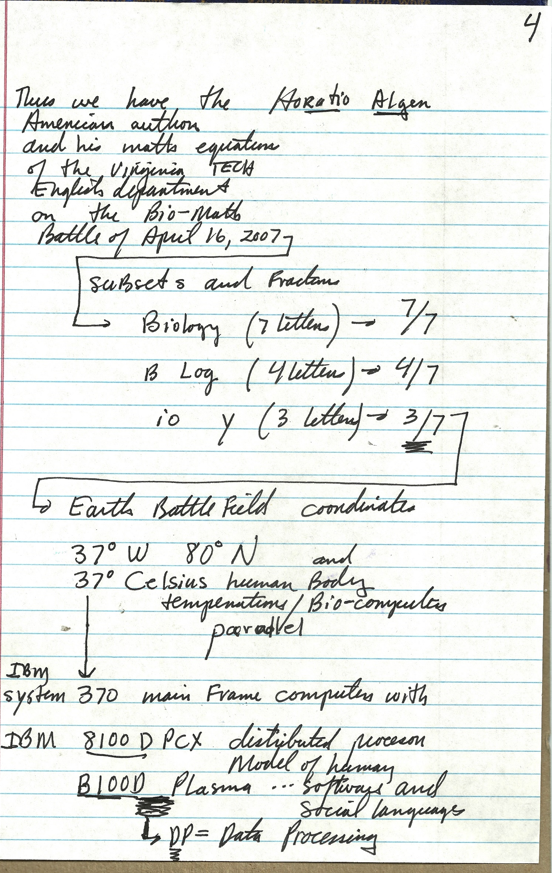 4
Thus we have the Horatio Algen
American author
and his math equation
of the Virginia TECH
English department
on the Bio-Math
Battle of April 16, 2007
subsets and Fractions
Biology (7 letters) → 7/7
B Log (4 letters) → 4/7
io y (3 letters) → 3/7
Earth BattleField coordinates
37° W 80° N and
37° Celsius human Body
tempenations/Bio-computers
paradel
IBM
system 370 main Frame computers with
IBM 8100 D PCX distributed processon
Model of human
B100D Plasma ... software and
Social languages
DP = Data Processing